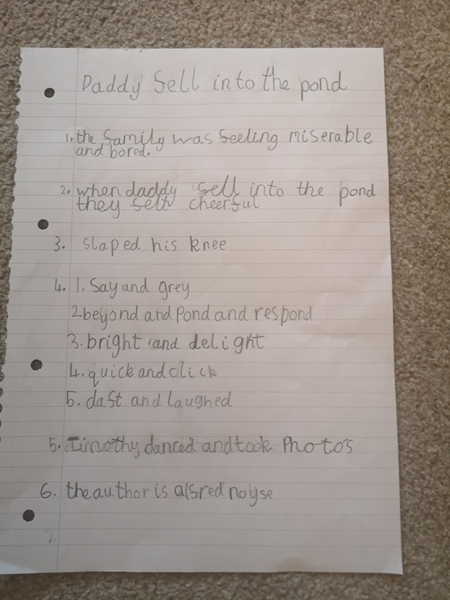 Daddy fell into the pond
1. the family was feeling miserable
and bored.
2. when daddy fell into the pond
they felt cheerful
3. slaped his knee
4. 1. Say and grey
2 beyond and Pond and respond
3. bright and delight
4. quick and click
5. daft and laughed
5. Timothy danced and took Photos
6. the author is alfred noyse
7.